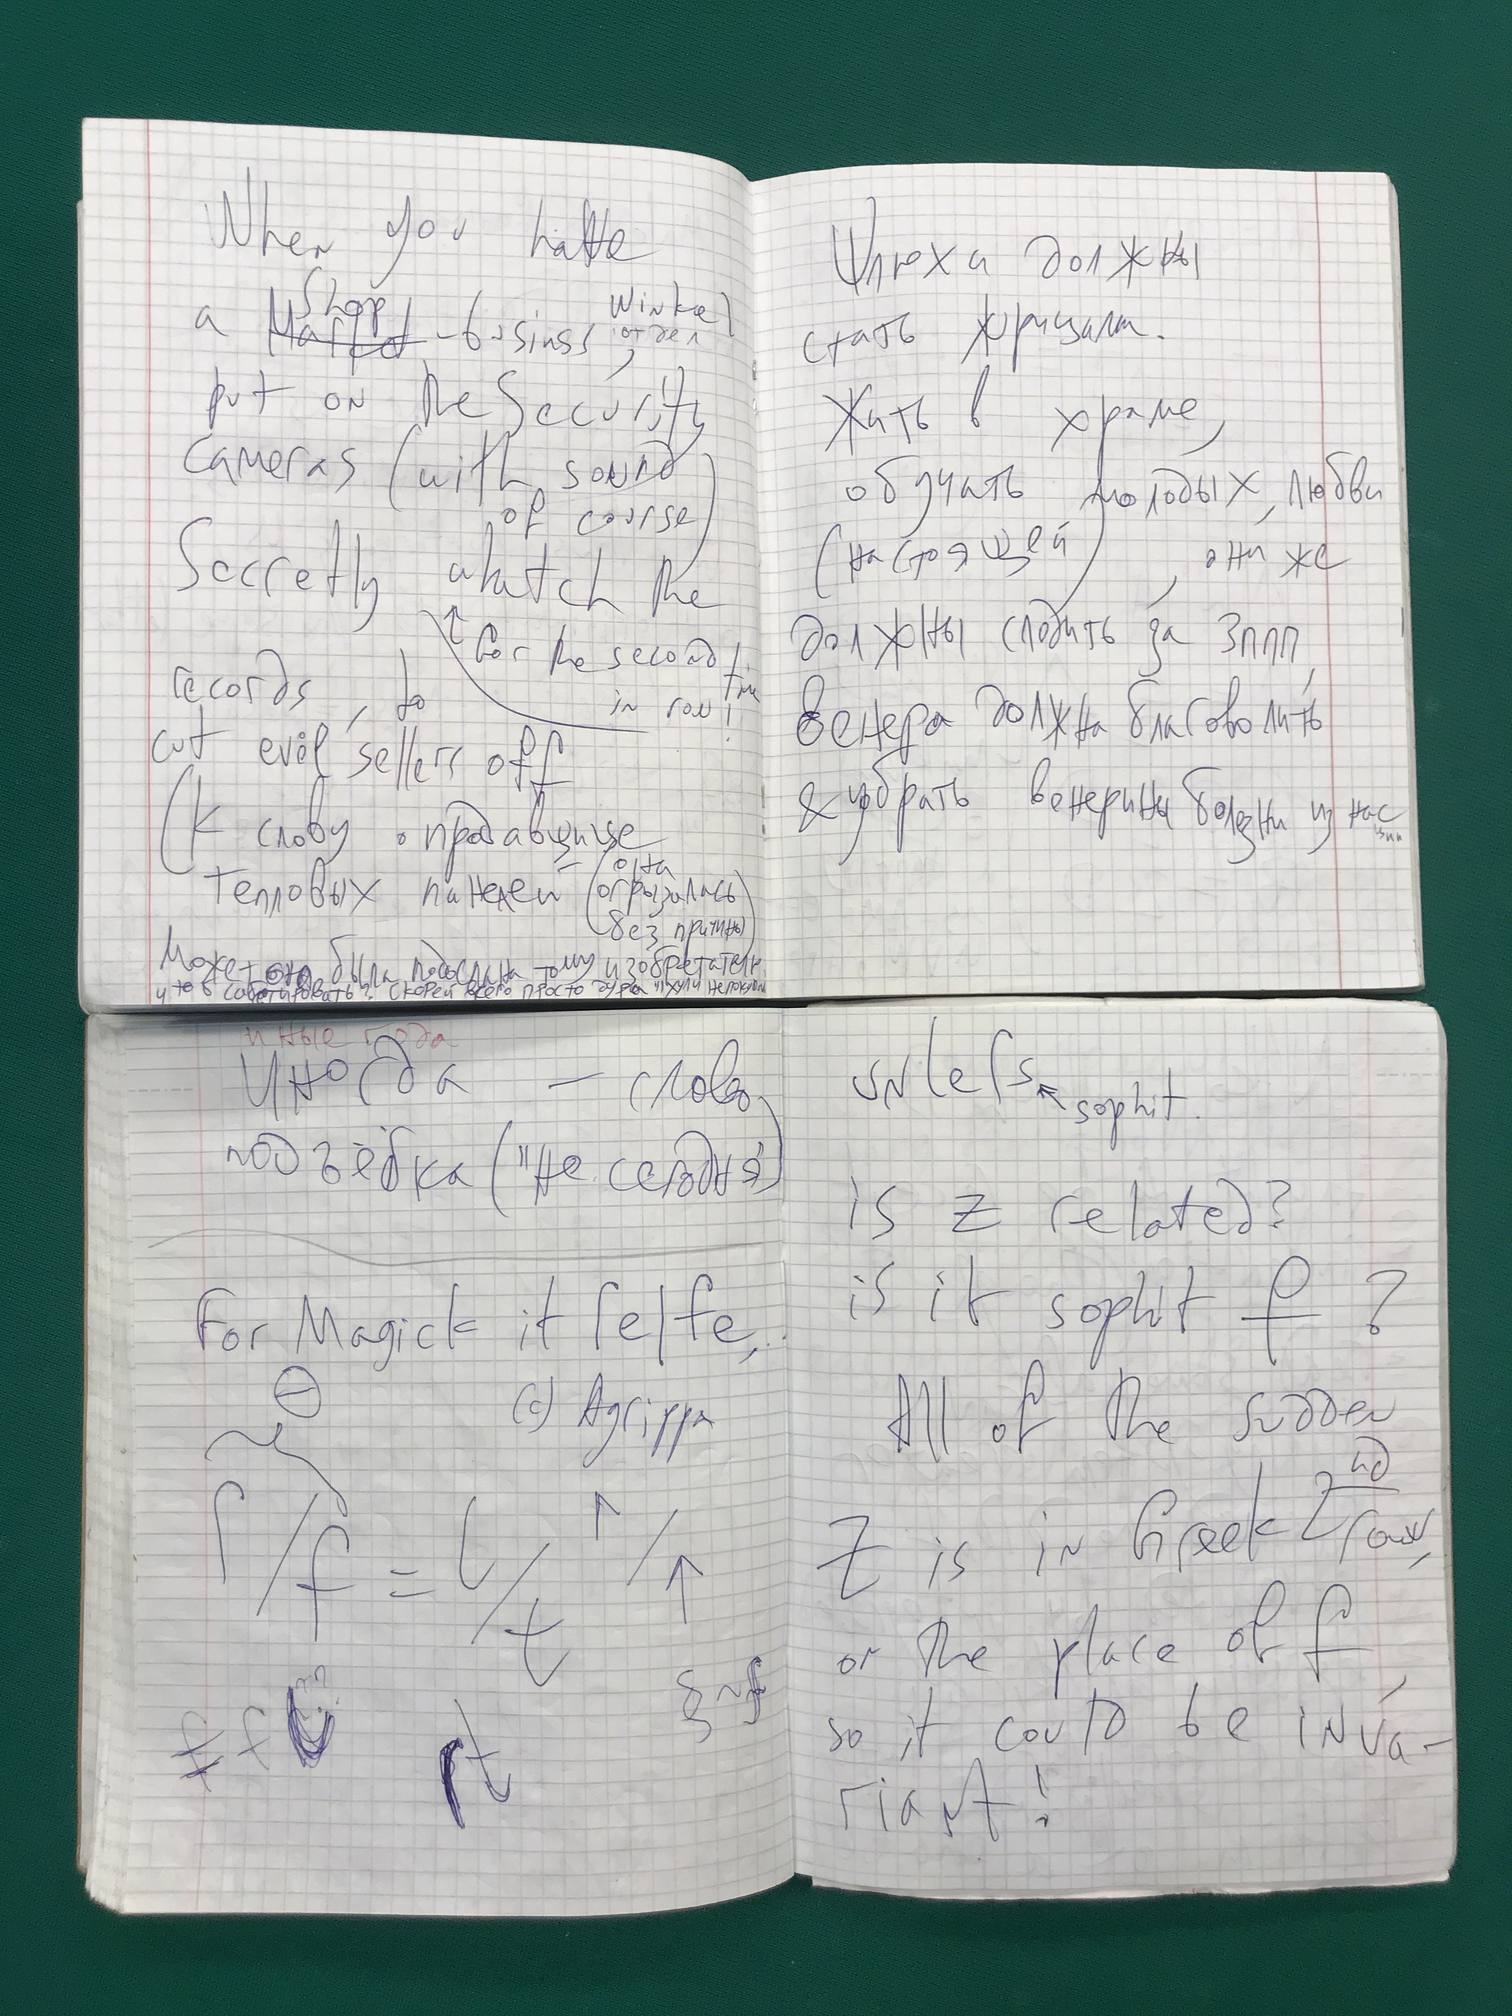 When you hatte
a Shop -business, Winkel
отдел
put on the Security
cameras (with sound
of course)
Secretly whatch the
for the second time
in row!
records, to
cut evil sellers off
(К слову о продавщице
тепловых панелей (она
огрызалась
без причины)
Может она была подослана тому изобретателю
чтоб саботировать? Скорей всего просто дура
Шлюхи должны
стать жрицами.
Жить в храме,
обучать молодых, любви
(настоящей), они же
должны следить за ЗППП,
Венера должна благоволить
& убрать венерины болезни из нас
иные года
Иногда – слово
подъёбка ("не сегодня")
For Magick it felfe,
(c) Agrippa
Θ
ſ/f = t
unlefs
sophit.
is z related?
is it sophit f?
All of the sudden
Z is in Greek 2nd row,
or the place of f,
so it could be inva-
riant!